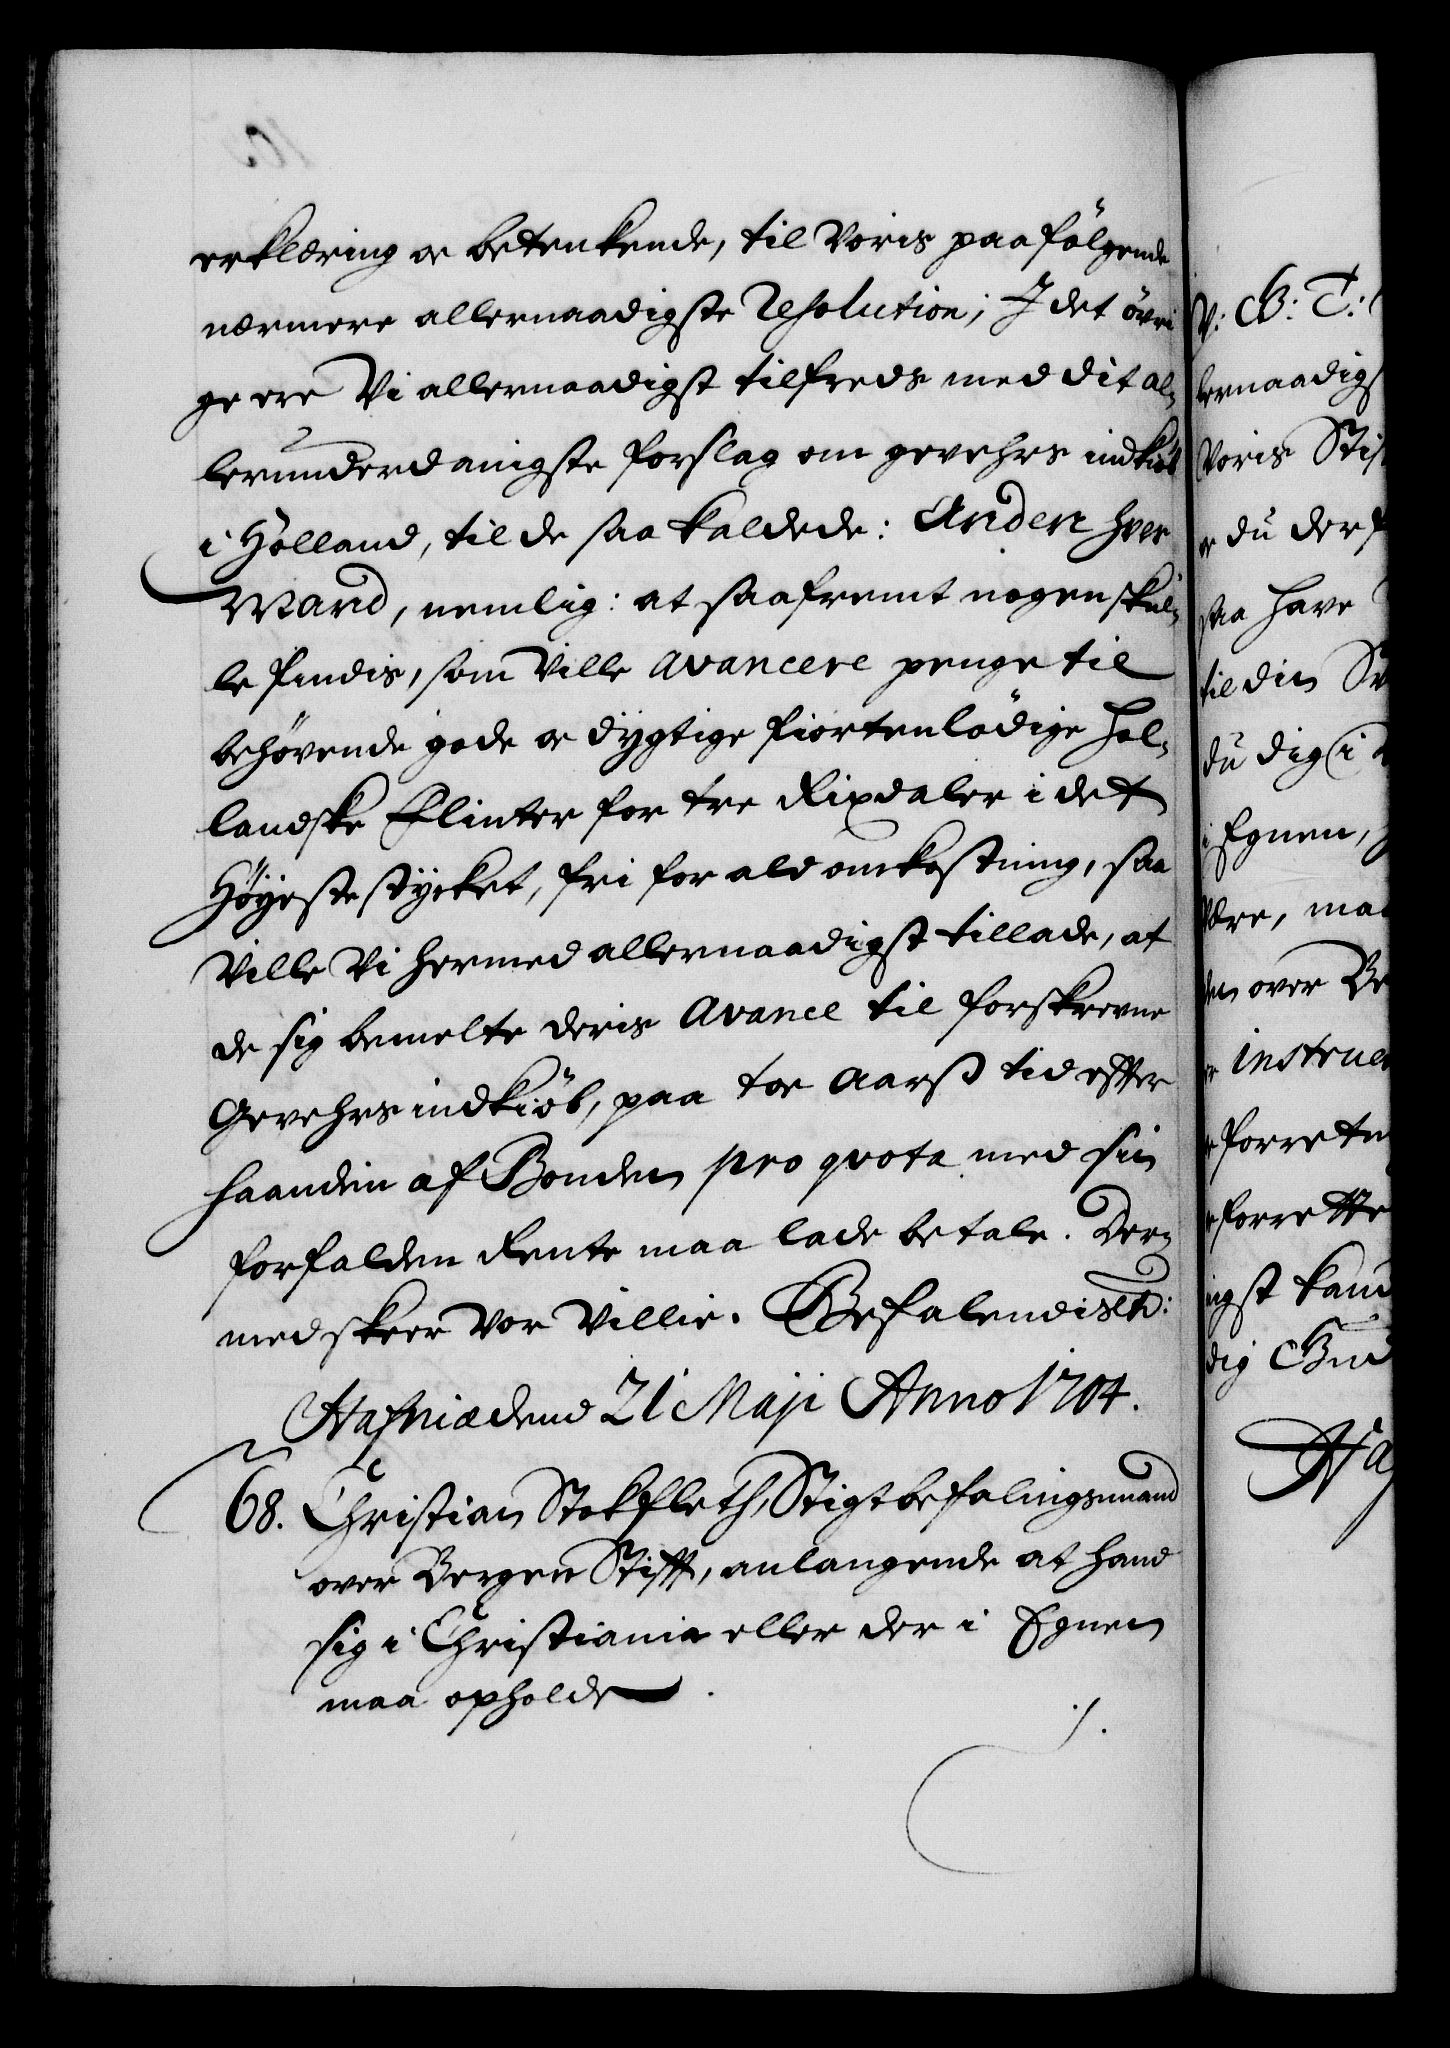 erklæring oc betenkende, til Voris paafölgende
nærmere allernaadigste Resolution; J det övri
ge ere Vi allernaadigst tilfreds med dit al„
lerunderdanigste forslag om gevehrs indkiöb
i Holland, til de saa kaldede: Anden hver
Mand, nemlig: at saafremt nogen skul„
le findis, som Ville avancere penge til
behövende gode oc dygtige fiortenlödige Hol„
landske Flinter for tre Rixdaler i det
Höyeste stycket, fri for ald omkostning, saa
Ville Vi hermed allernaadigst tillade, at
de sig bemelte deris Avance til forskrevne
Gevehrs indkiöb, paa toe Aarß tid efter
haanden af Bonden pro qvota med sin
forfalden Rente maa lade betale. Der„
med skeer Vor Villie. Befalendis etc:
Hafniæ dend 21 Maji Anno 1704.
68. Christian Stokfleth, Stigtbefalingsmand
over Bergen Stifft, anlangende at hand
sig i Christiania eller der i Egnen
maa opholde.
V: G: T:
lernaadigs
Voris Stif
oc du derf
saa have
til din
du dig i
i Egnen,
være, maa
den over Be
instruc
forrette
ngst kand
dig Gud
Haf